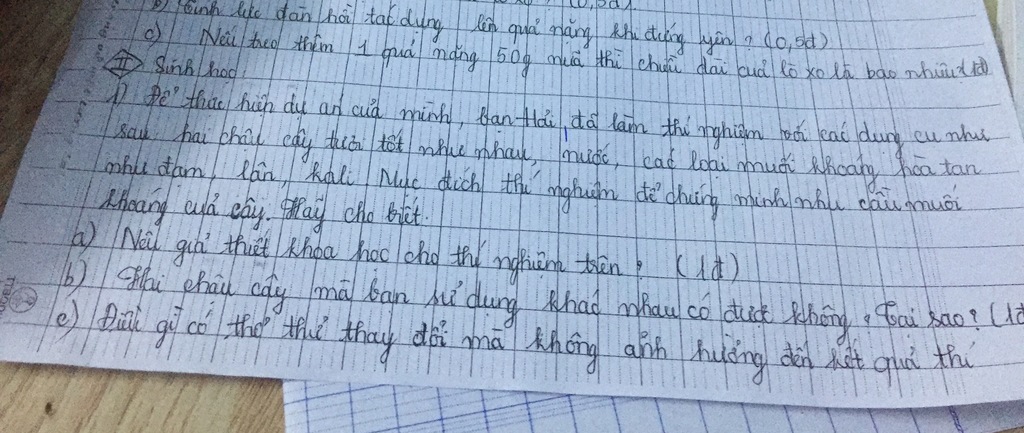 b) Tính lực đàn hồi tác dụng lên quả nặng khi đứng yên? (0,5đ)
c) Nếu treo thêm 1 quả nặng 50g nữa thì chiều dài của lò xo là bao nhiêu? 1đ
II Sinh học
1) Để thực hiện dự án của mình, bạn Hải đã làm thí nghiệm với các dụng cụ như
sau hai chậu cây tươi tốt như nhau, nước, các loại muối khoáng hòa tan
như đạm, lân, kali. Mục đích thí nghiệm để chứng minh nhu cầu muối
khoáng của cây. Hãy cho biết.
a) Nêu giả thiết khoa học cho thí nghiệm trên? (1đ)
b) Hai chậu cây mà bạn sử dụng khác nhau có được không? Tại sao? (1đ
c) Điều gì có thể thử thay đổi mà không ảnh hưởng đến kết quả thí